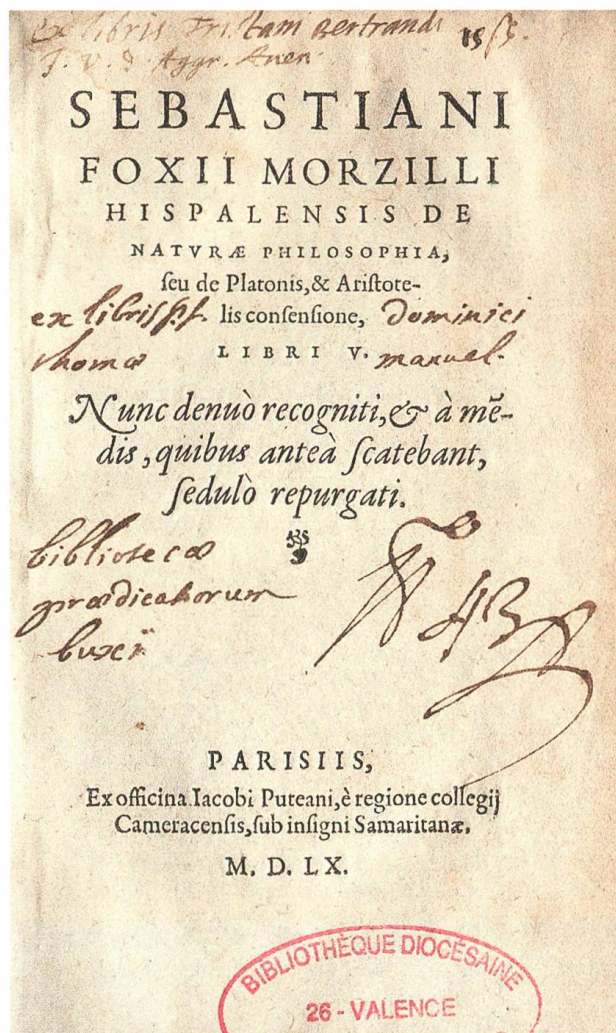 ex libris Tristam Bertrandi
J. V. D. Aggr. Aven.
SEBASTIANI
FOXII MORZILLI
HISPALENSIS DE
NATVRÆ PHILOSOPHIA,
ſeu de Platonis, & Ariſtote-
ex libris lis conſenſione, Dominici
thomæ LIBRI V. manuel.
Nunc denuò recogniti, & à mẽ-
dis, quibus anteà ſcatebant,
ſedulò repurgati.
bibliotecæ
prædicatorum
buxij
PARISIIS,
Ex officina Iacobi Puteani, è regione collegij
Cameracenſis, ſub inſigni Samaritanæ.
M. D. LX.
BIBLIOTHÈQUE DIOCÉSAINE
26 - VALENCE